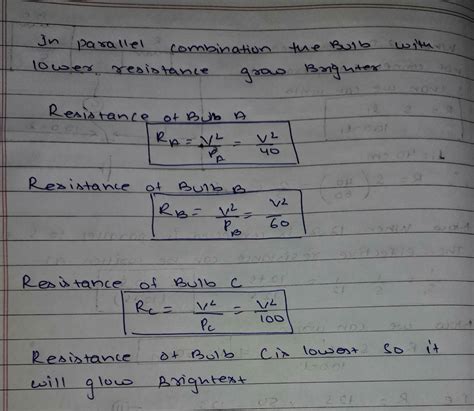 In parallel combination the Bulb with
lower resistance grow Brighter
Resistance of Bulb A
R_A = V²/P_A = V²/40
Resistance of Bulb B
R_B = V²/P_B = V²/60
Resistance of Bulb C
R_C = V²/P_C = V²/100
Resistance of Bulb C is lowest so it
will glow Brightest